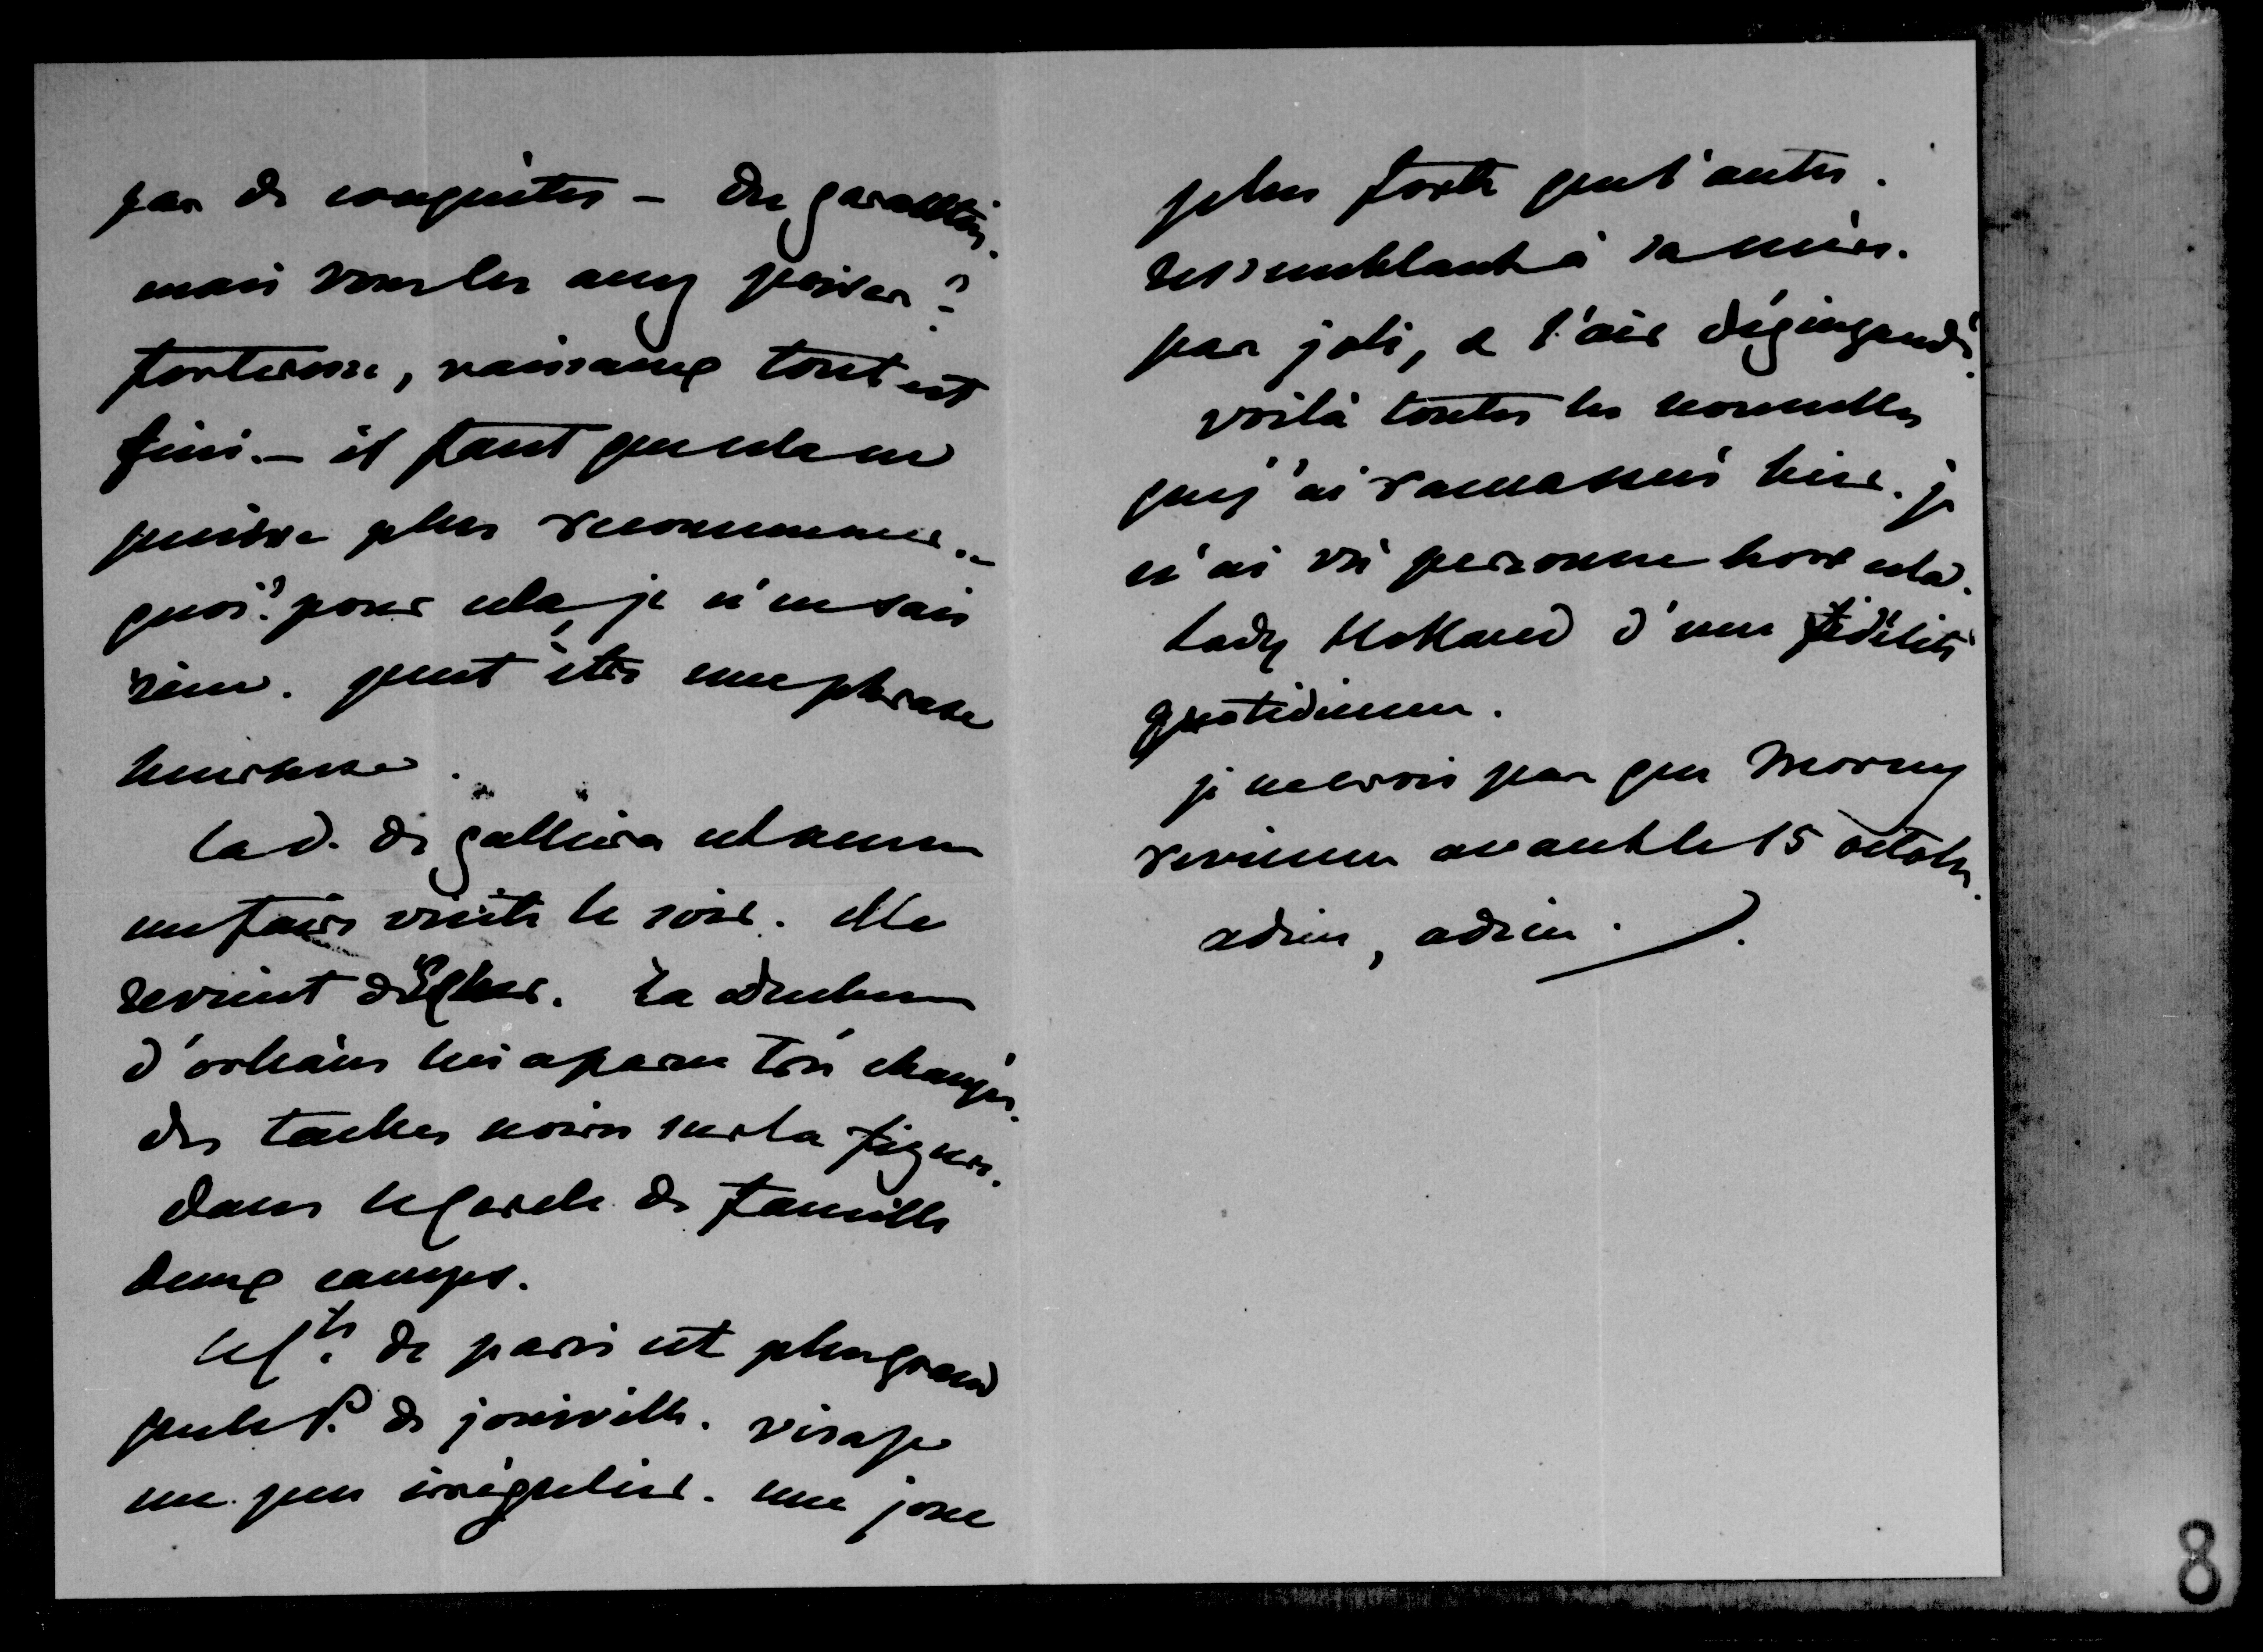 pas de conquêtes - des garanties.
mais vous les avez prises?
forteresse, vaisseaux tout est
fini. - il faut que cela ne
puisse plus recommencer. -
quoi? pour cela, je n'en sais
rien. peut être une phrase
heureuse.
la d. de galliera est venue
me faire visite le soir. elle
revient d'. La duchesse
d'orléans lui a paru très changée.
des taches noires sur la figure.
dans le cercle de famille
deux camps.
le Cte de paris est plus grand
que le P. de joinville. visage
un peu irrégulier. une joue
plus forte que l'autre.
ressemblant à sa mère.
pas joli, a l'air dégingandé.
voilà toutes les nouvelles
que j'ai ramassées hier. je
n'ai vu personne hors cela.
Lady Holland d'une fidélité
quotidienne.
je ne crois pas que Morny
revienne avant le 15 octobre.
adieu, adieu.
8